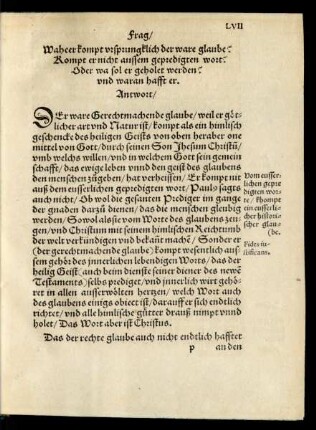 LVII
Frag/
Waheer kompt vrsprungklich der ware glaube?
Kompt er nicht aussem gepredigten wort?
Oder wa sol er geholet werden?
vnd waran hafft er.
Antwort/
DEr ware Gerechtmachende glaube/ weil er göt-
licher art vnd Natur ist/ kompt als ein himlisch
geschenck des heiligen Geists von oben heraber one
mittel von Gott/ durch seinen Son Jhesum Christũ/
vmb welchs willen/ vnd in welchem Gott sein gemein
schafft/ das ewige leben vnnd den geist des glaubens
den menschen zůgeben/ hat verheissen/ Er kompt nit
auß dem eusserlichen gepredigten wort/ Pauls sagts
auch nicht/ Ob wol die gesanten Prediger im gange
der gnaden darzů dienen/ das die menschen gleubig
werden/ So wol als sie vom Worte des glaubens zeu-
gen/ vnd Christum mit seinem himlischen Reichthumb
der welt verkündigen vnd bekañt machẽ/ Sonder er
(der gerechtmachende glaube) kompt wesentlich auß
sem gehör des jnnerlichen lebendigen Worts/ das der
heilig Geist (auch beim dienste seiner diener des newẽ
Testaments) selbs prediget/ vnd jnnerlich wirt gehö-
ret in allen ausserwölten hertzen/ welch Wort auch
des glaubens einigs obiect ist/ darauff er sich endtlich
richtet/ vnd alle himlische gütter drauß nimpt vnnd
holet/ Das Wort aber ist Christus.
Das der rechte glaube auch nicht endtlich hafftet
p an den
Vom eusser-
lichen gepre
digten wor-
te/ khompt
ein eusserli-
cher historis-
scher glau-
be.